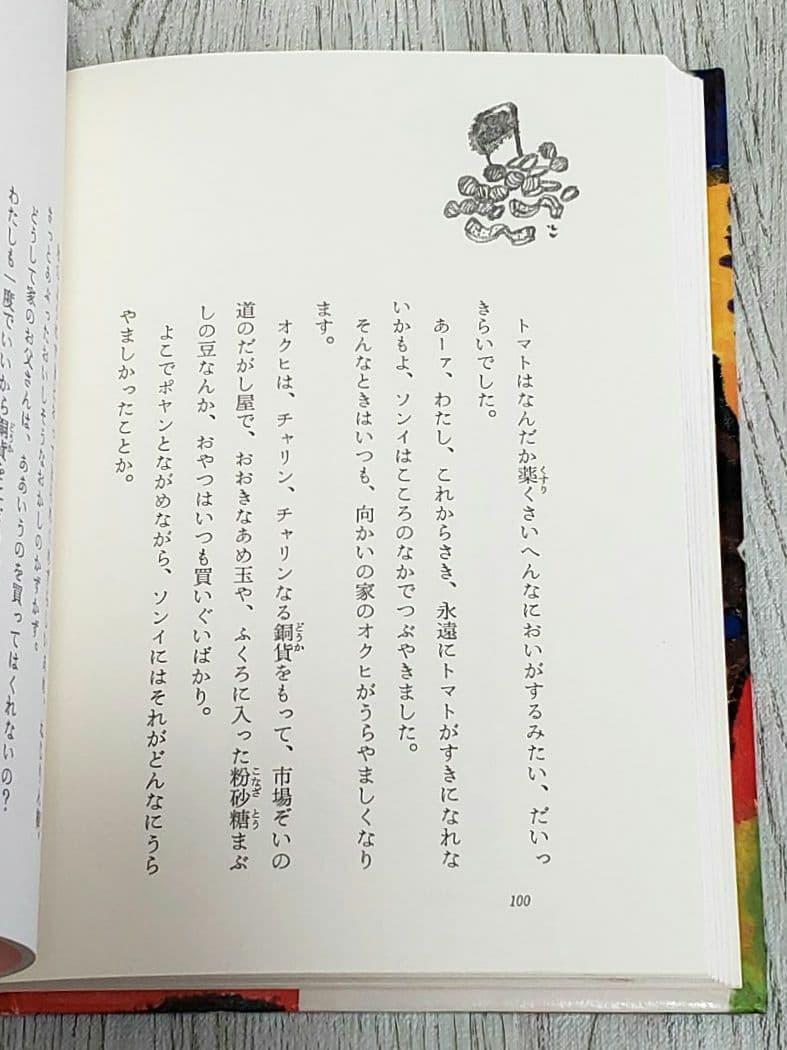 トマトはなんだか薬くさいへんなにおいがするみたい、だいっ
くすり
きらいでした。
あーァ、わたし、これからさき、永遠にトマトがすきになれな
いかもよ、ソンイはこころのなかでつぶやきました。
そんなときはいつも、向かいの家のオクヒがうらやましくなり
ます。
オクヒは、チャリン、チャリンなる銅貨をもって、市場ぞいの
どうか
道のだがし屋で、おおきなあめ玉や、ふくろに入った粉砂糖まぶ
こなざとう
しの豆なんか、おやつはいつも買いぐいばかり。
よこでポヤンとながめながら、ソンイにはそれがどんなにうら
やましかったことか。
100
おいしそうなおかしのかずかず。
どうして家のお父さんは、ああいうのを買ってはくれないの？
わたしも一度でいいから銅貨
どうか